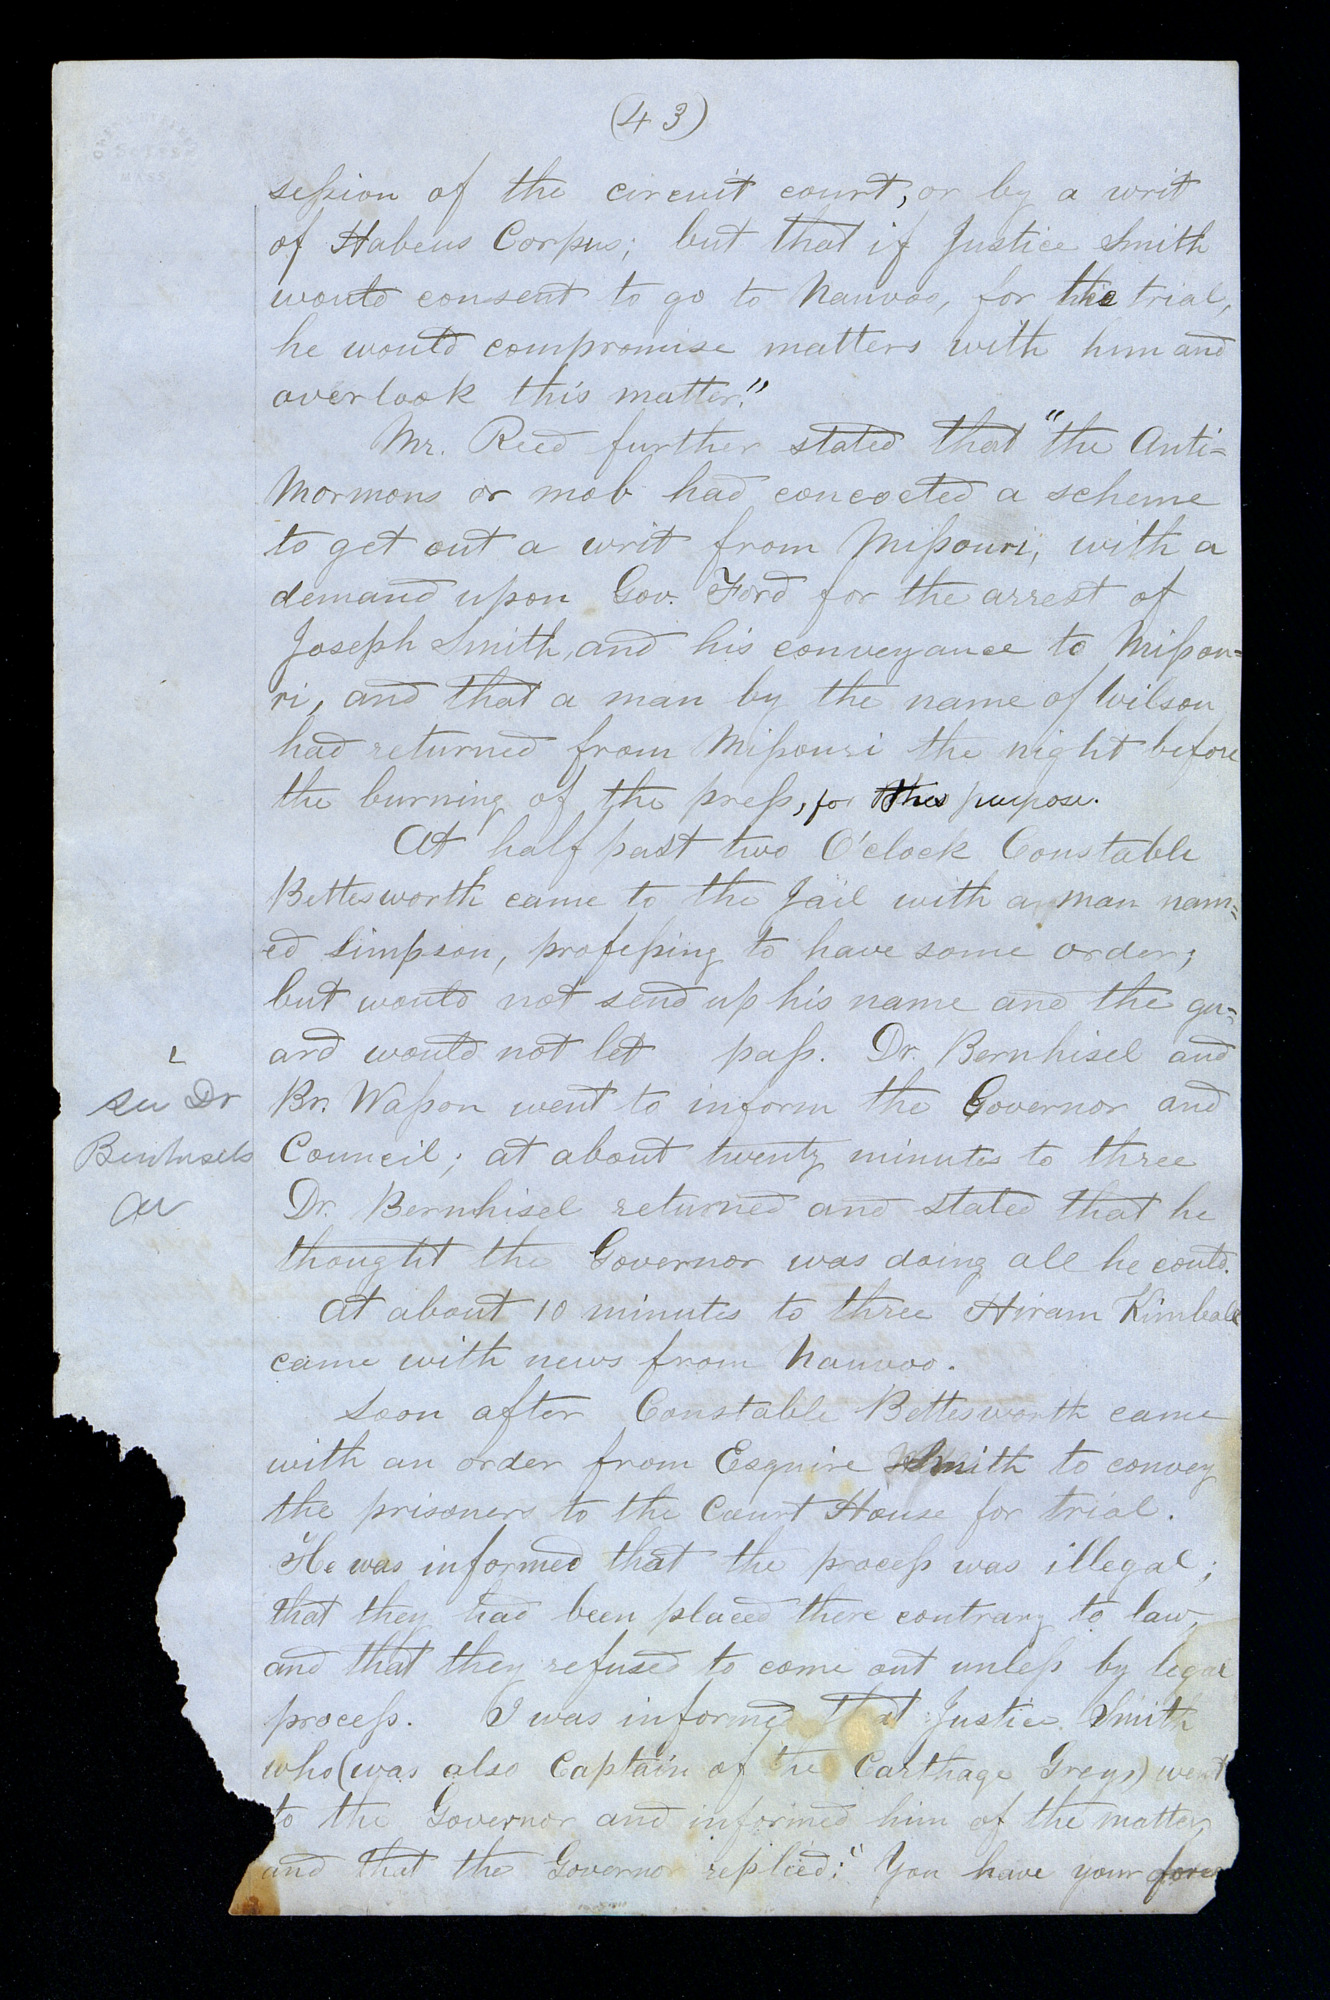 (43)
session of the circuit court, or by a writ
of Habeus Corpus; but that if Justice Smith
would consent to go to Nauvoo, for the trial,
he would compromise matters with him and
overlook this matter."
Mr. Reed further stated that "the Anti=
Mormons or mob had concocted a scheme
to get out a writ from Missouri, with a
demand upon Gov. Ford for the arrest of
Joseph Smith, and his conveyance to Missou=
ri, and that a man by the name of Wilson
had returned from Missouri the night before
the burning of the press, for this purpose.
At half past two O'clock Constable
Bettesworth came to the Jail with a man nam=
ed Simpson, professing to have some order;
but would not send up his name and the gu=
ard would not let pass. Dr. Bernhisel and
Br. Wasson went to inform the Governor and
see Dr
Council; at about twenty minutes to three
Dr. Bernhisel returned and stated that he
thought the Governor was doing all he could.
At about 10 minutes to three Hiram Kimball
came with news from Nauvoo.
Soon after Constable Bettesworth came
with an order from Esquire Smith to convey
the prisoners to the Court House for trial.
He was informed that the process was illegal;
that they had been placed there contrary to law,
and that they refused to come out unless by legal
process. I was informed that Justice Smith
who (was also Captain of the Carthage Greys) went
to the Governor and informed him of the matter,
and that the Governor replied: "You have your forces